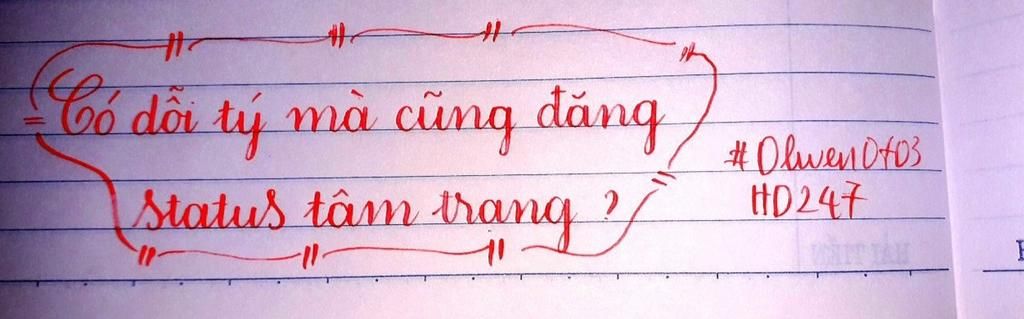 Có dỗi tý mà cũng đăng
status tâm trạng ?
#Olwen0703
HD247
HẢI TIẾN